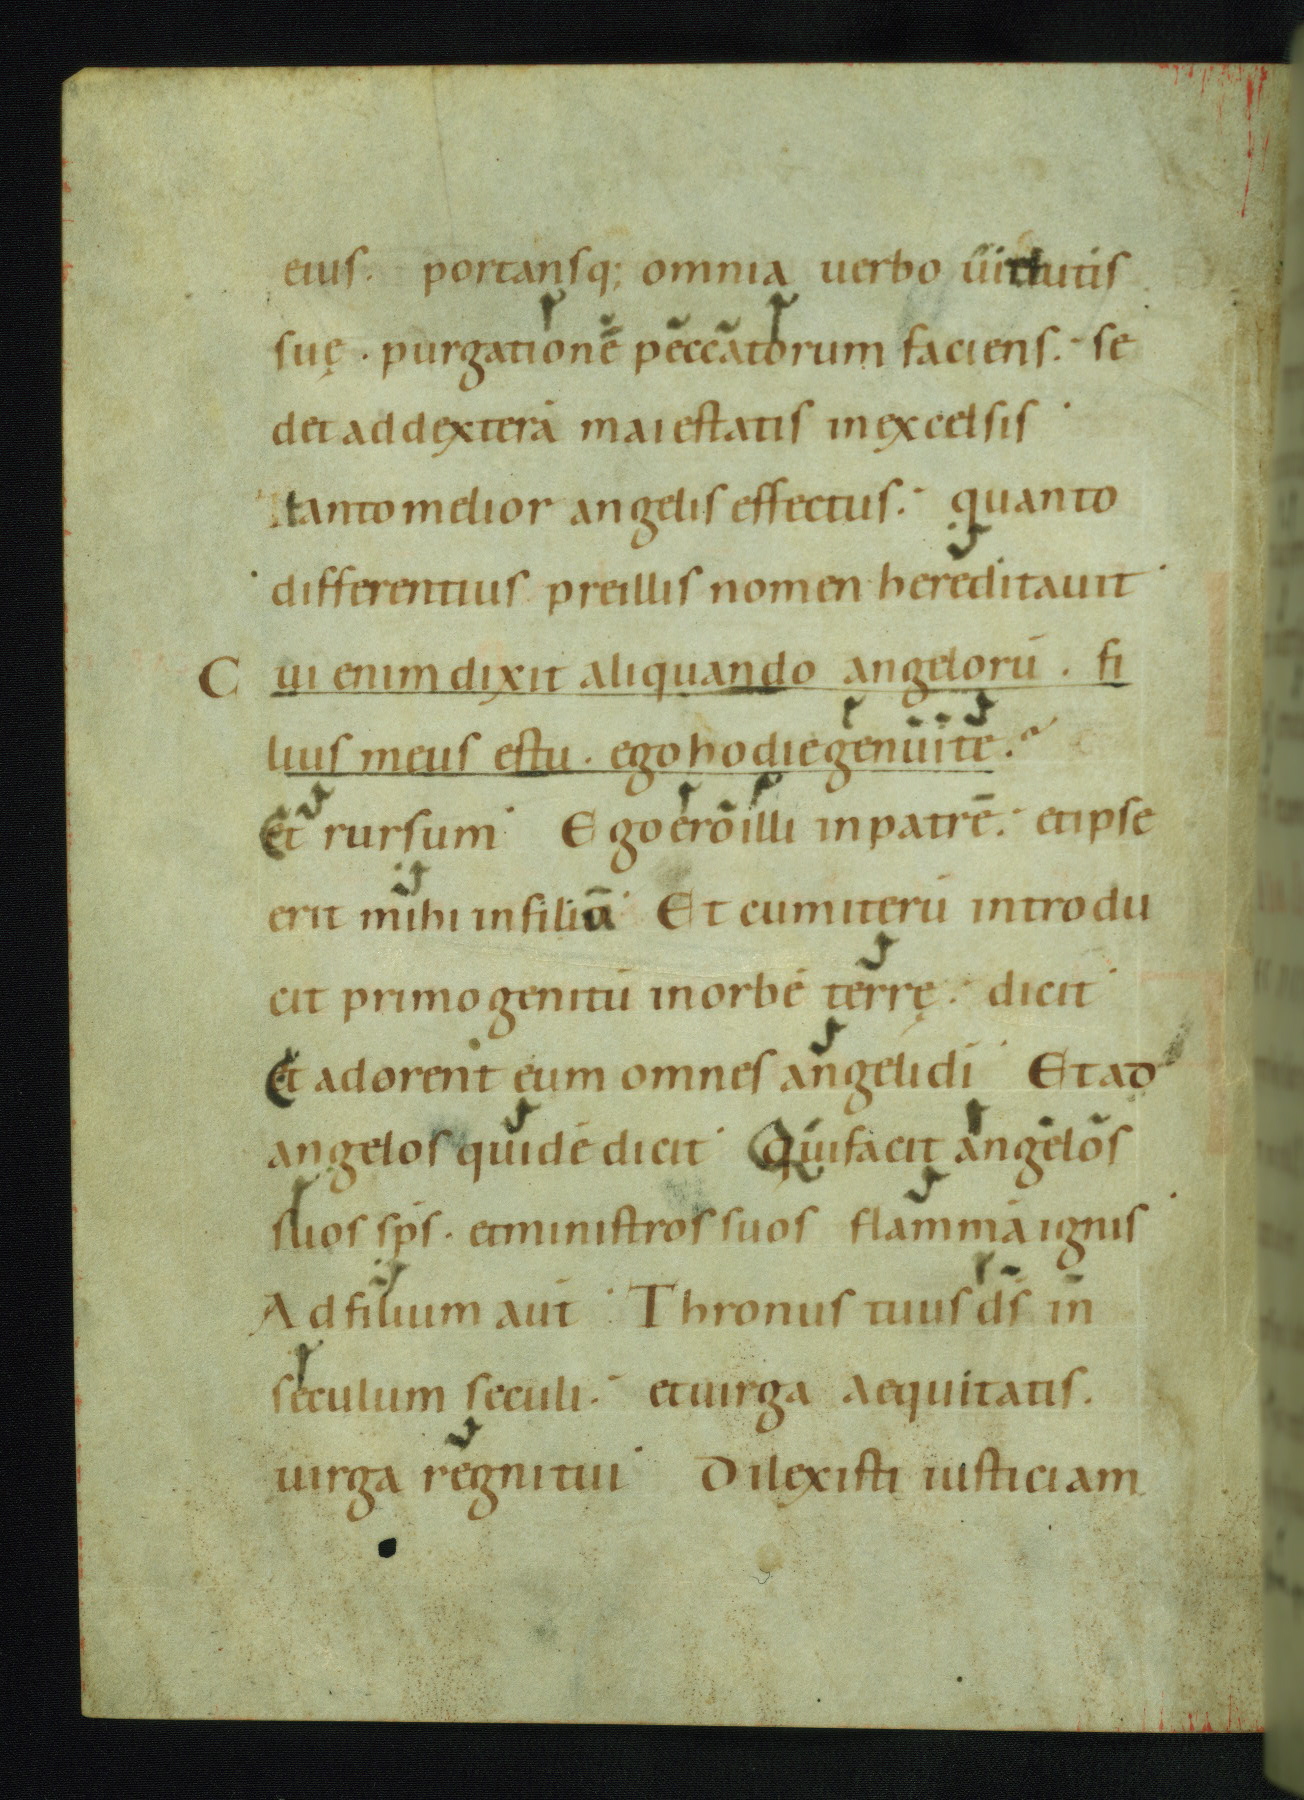 eius. portansq; omnia uerbo uirtutis
suę. purgationē peccatorum faciens. se
det ad dexterā maiestatis in excelsis
tanto melior angelis effectus. quanto
differentius pre illis nomen hereditauit
Cui enim dixit aliquando angelorū. fi
lius meus es tu. ego hodie genui te.
Et rursum Ego ero illi in patrē. et ipse
erit mihi in filiū Et cum iterū introdu
cit primogenitū in orbē terrę. dicit
Et adorent eum omnes angeli di Et ad
angelos quidē dicit Qui facit angelos
suos sps. et ministros suos flammā ignis
Ad filium aut Thronus tuus ds in
seculum seculi. et uirga aequitatis.
uirga regni tui Dilexisti iusticiam